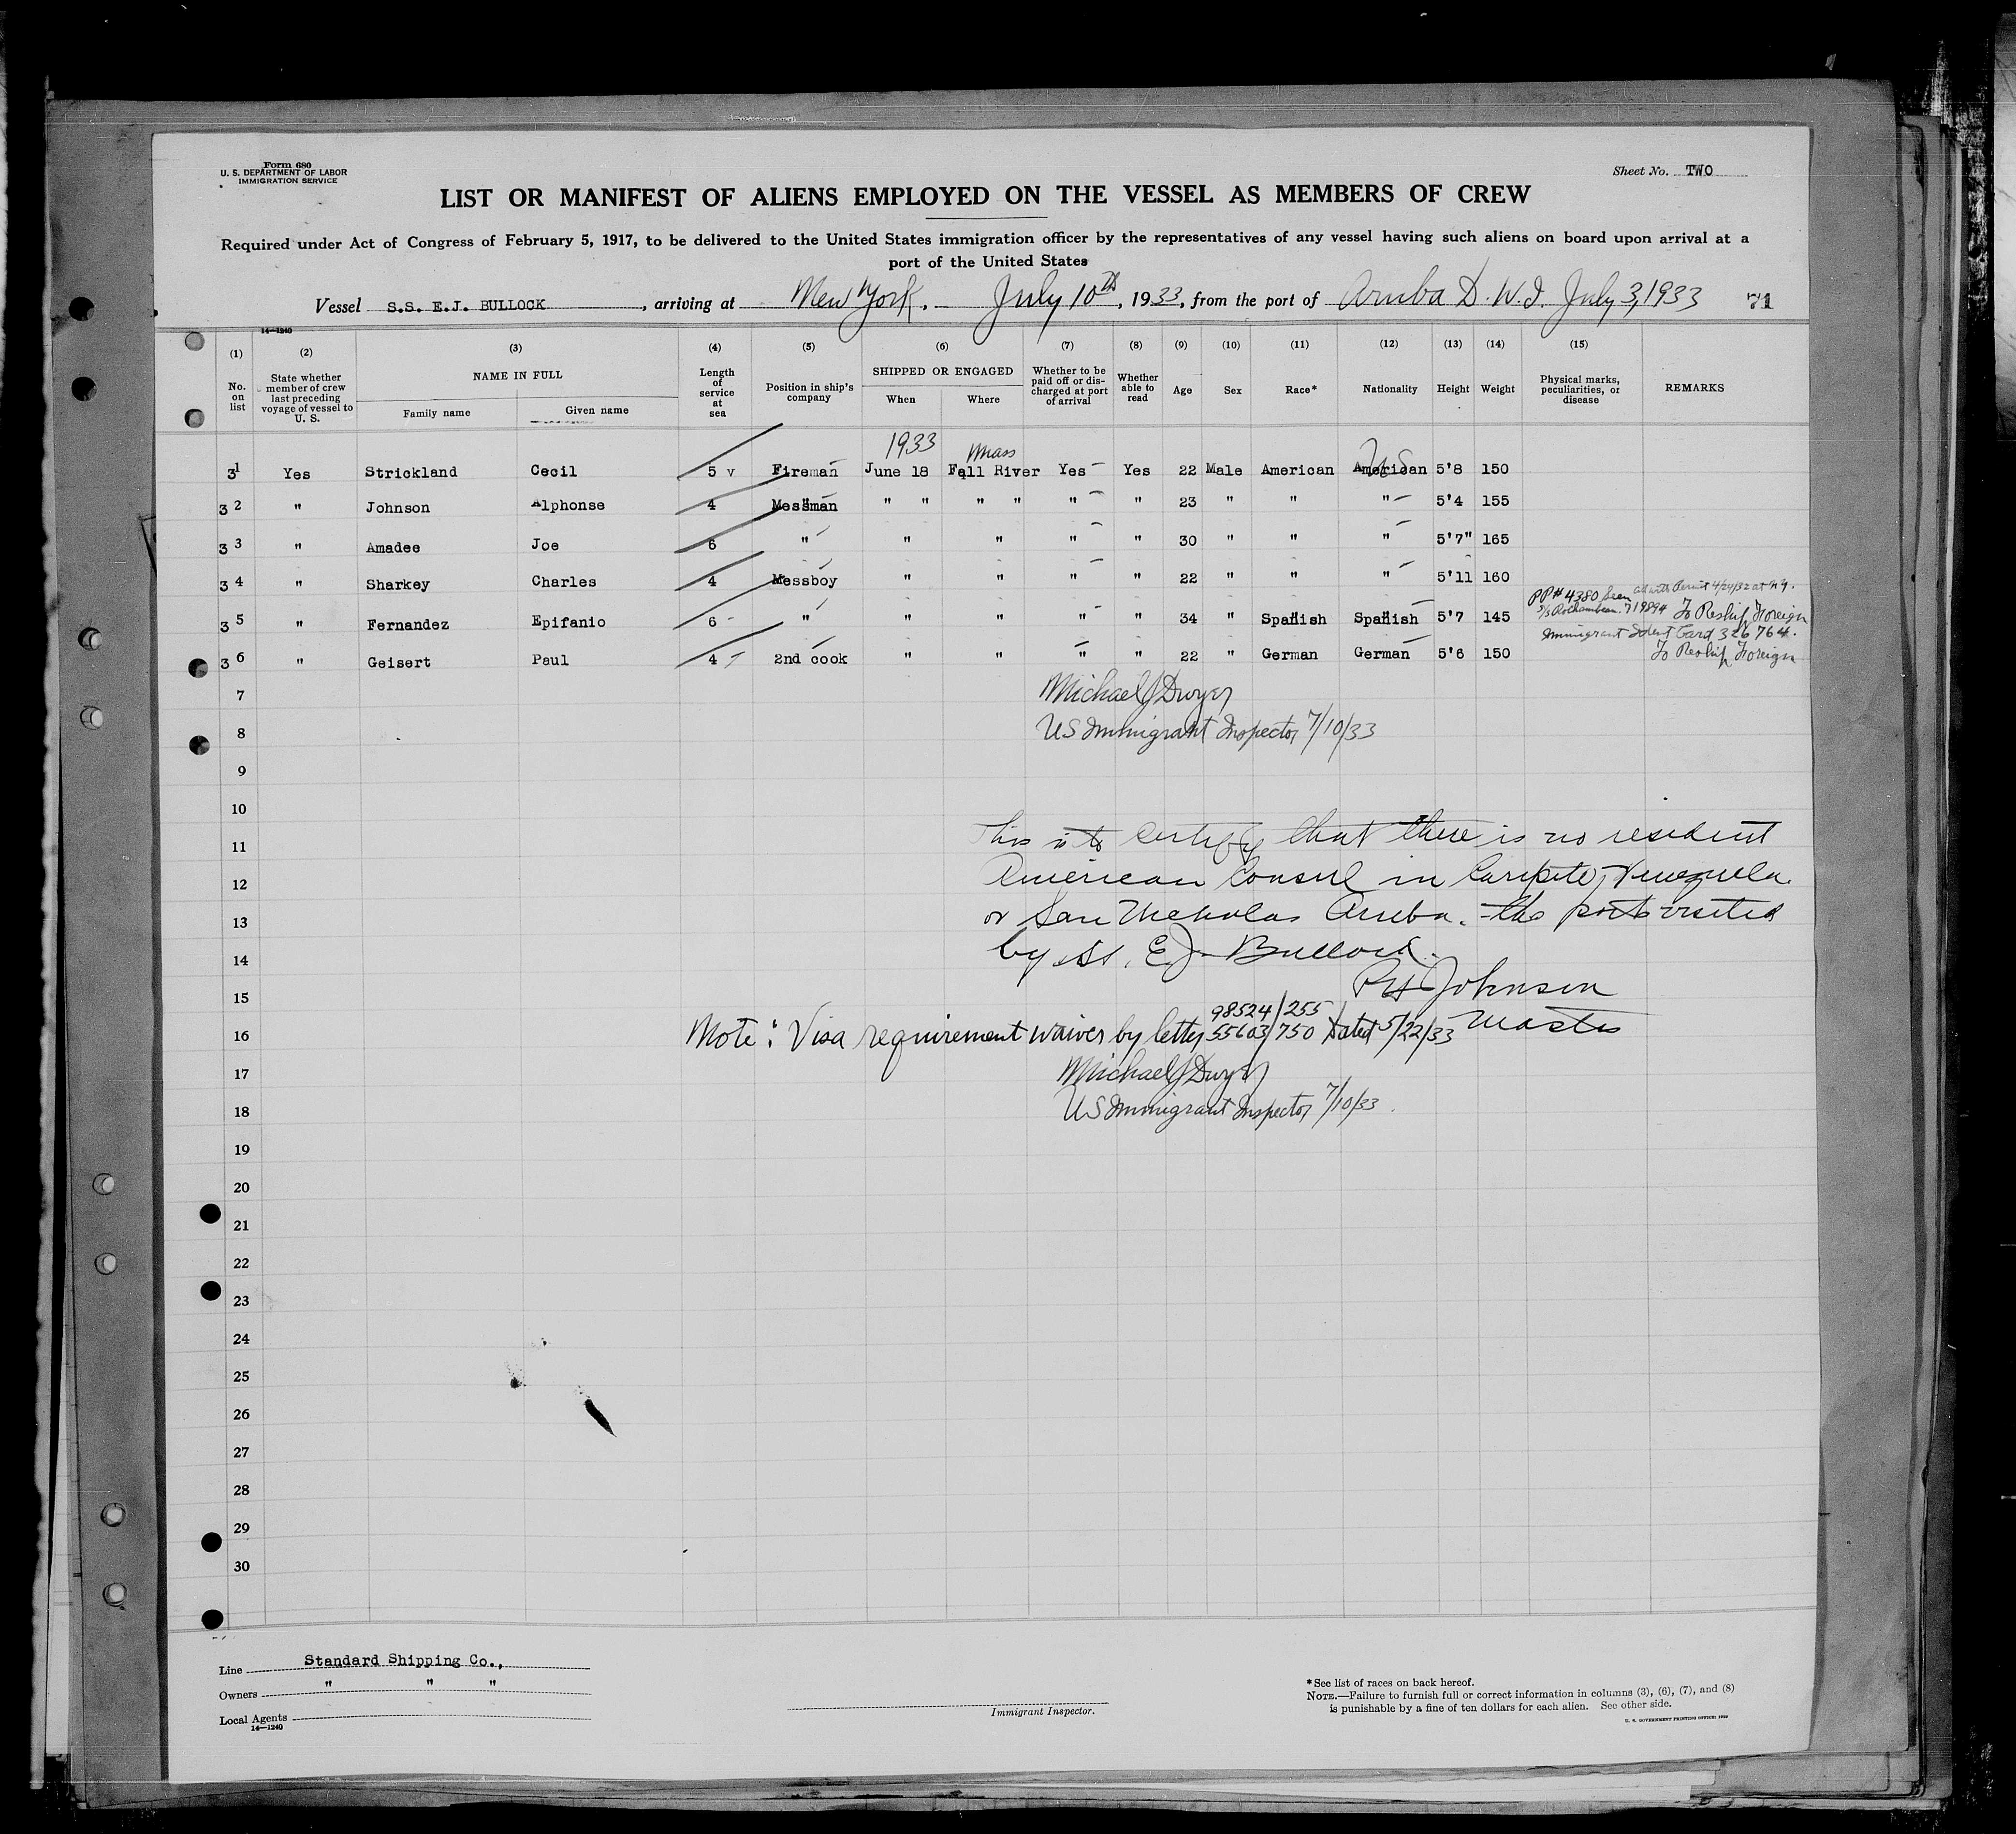 Form 680
U. S. DEPARTMENT OF LABOR
IMMIGRATION SERVICE
Sheet No. TWO
LIST OR MANIFEST OF ALIENS EMPLOYED ON THE VESSEL AS MEMBERS OF CREW
Required under Act of Congress of February 5, 1917, to be delivered to the United States immigration officer by the representatives of any vessel having such aliens on board upon arrival at a
port of the United States
Vessel S.S. E.J. BULLOCK, arriving at New York. July 10th, 1933, from the port of Aruba D.W.I. July 3, 1933 71
14—1240
(1) (2) (3) (4) (5) (6) (7) (8) (9) (10) (11) (12) (13) (14) (15)
No. on list State whether member of crew last preceding voyage of vessel to U. S. NAME IN FULL Family name Given name Length of service at sea Position in ship's company SHIPPED OR ENGAGED When Where Whether to be paid off or discharged at port of arrival Whether able to read Age Sex Race* Nationality Height Weight Physical marks, peculiarities, or disease REMARKS
1933 Mass US
31 Yes Strickland Cecil 5 v Fireman June 18 Fall River Yes Yes 22 Male American American 5'8 150
32 " Johnson Alphonse 4 Messman " " " " " " 23 " " " 5'4 155
33 " Amadee Joe 6 " " " " " 30 " " " 5'7" 165
34 " Sharkey Charles 4 Messboy " " " " 22 " " " 5'11 160
PP# 4380 seen 4/24/32 at N.Y.
35 " Fernandez Epifanio 6 " " " " " 34 " Spanish Spanish 5'7 145 S/S Rochambeau 719894 To Reship Foreign
Immigrant Ident Card 326764.
36 " Geisert Paul 4 2nd cook " " " " 22 " German German 5'6 150 To Reship Foreign
7 Michael J Dwyer
8 US Immigrant Inspector 7/10/33
9
10
11 This is to certify that there is no resident
12 American Consul in Caripito, Venezuela
13 or San Nicholas Aruba. the ports visited
14 by SS. E.J. Bullock.
15 Johnson
98524/255
16 Note: Visa requirement waiver by letter 55603/750 dated 5/22/33 Master
17 Michael J Dwyer
18 US Immigrant Inspector 7/10/33.
19
20
21
22
23
24
25
26
27
28
29
30
Line Standard Shipping Co.,
Owners " " "
Local Agents
14—1240
Immigrant Inspector.
*See list of races on back hereof.
NOTE.—Failure to furnish full or correct information in columns (3), (6), (7), and (8)
is punishable by a fine of ten dollars for each alien. See other side.